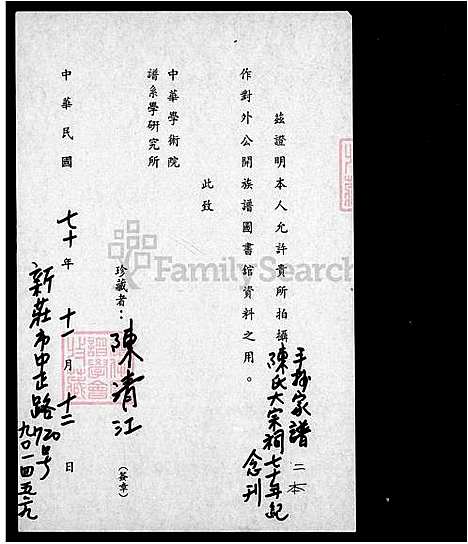 茲證明本人允許貴所拍攝手抄家譜二本
陳氏大宗祠七十年紀
念刊
作對外公開族譜圖書館資料之用。
此致
中華學術院
譜系學研究所
珍藏者：陳清江
（簽章）
中華民國七十年十一月十二日
新莊市中正路720号
九〇一四五一九
FamilySearch